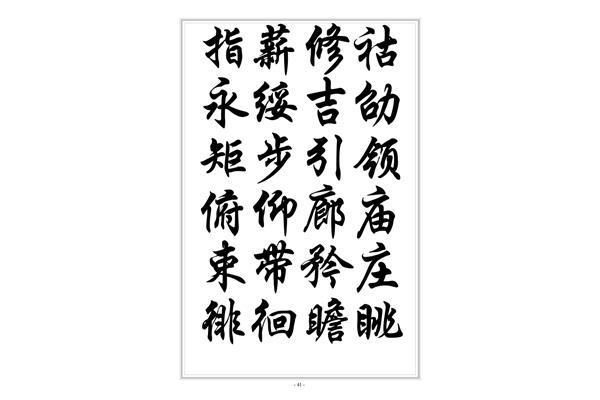 指薪修祜
永绥吉劭
矩步引领
俯仰廊庙
束带矜庄
徘徊瞻眺
- 41 -